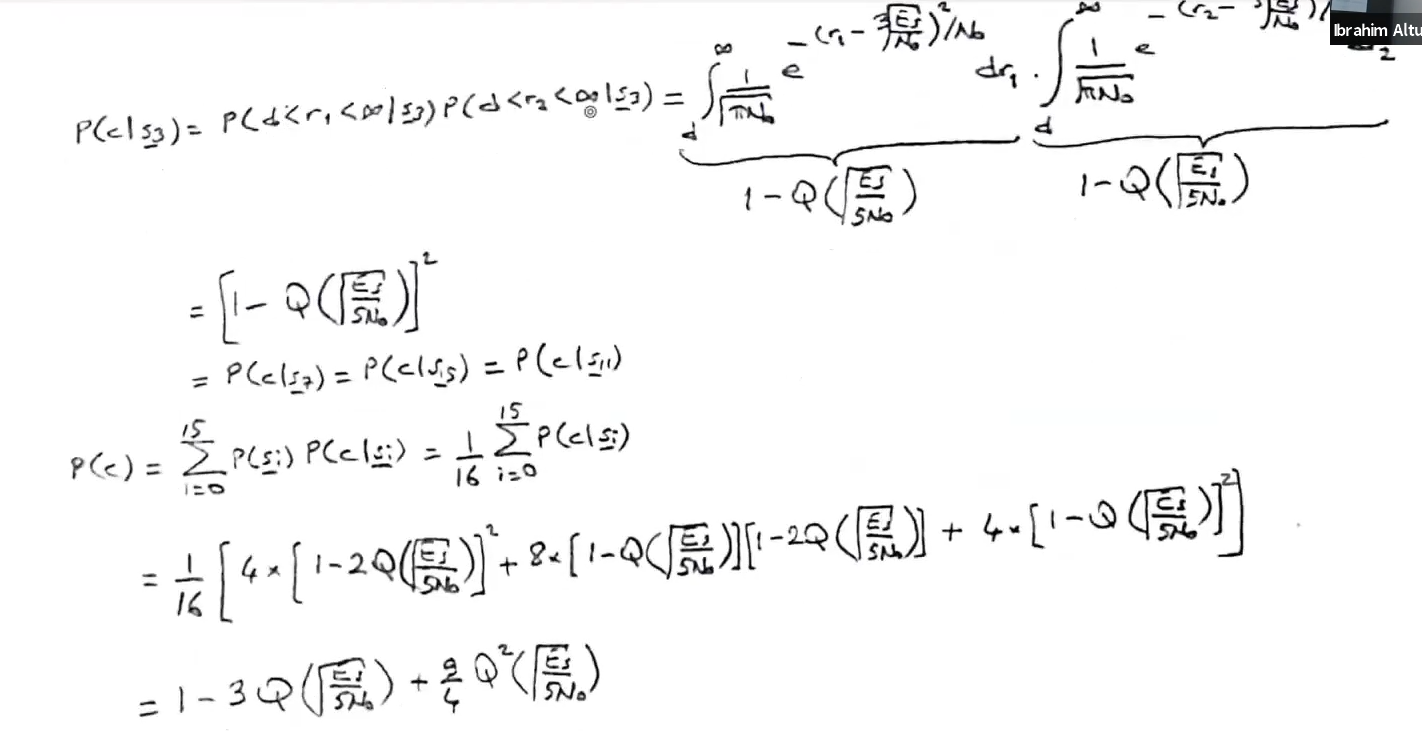 Ibrahim Altu
P(c|s3) = P(d<r1<∞|s3) P(d<r2<∞|s3) = ∫_d^∞ 1/√(πN0) e^{-(r1 - 3√(Es/N0))²/N0} dr1 . ∫_d^∞ 1/√(πN0) e^{-(r2 -
1 - Q(√(Es/5N0)) 1 - Q(√(Es/5N0))
= [1 - Q(√(Es/5N0))]²
= P(c|s7) = P(c|s15) = P(c|s11)
P(c) = Σ_{i=0}^{15} P(si) P(c|si) = 1/16 Σ_{i=0}^{15} P(c|si)
= 1/16 [4 × [1 - 2Q(√(Es/5N0))]² + 8 × [1 - Q(√(Es/5N0))][1 - 2Q(√(Es/5N0))] + 4 × [1 - Q(√(Es/5N0))]²]
= 1 - 3Q(√(Es/5N0)) + 9/4 Q²(√(Es/5N0))